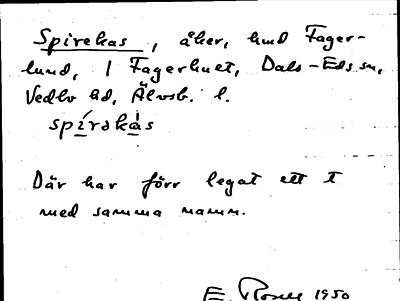 Spirekas, åker, hmd Fager-
lund, 1 Fagerhuet, Dals-Eds sn,
Vedbo hd, Älvsb. l.
spírəkàs
Där har förr legat ett t
med samma namn.
E. Rosell 1950